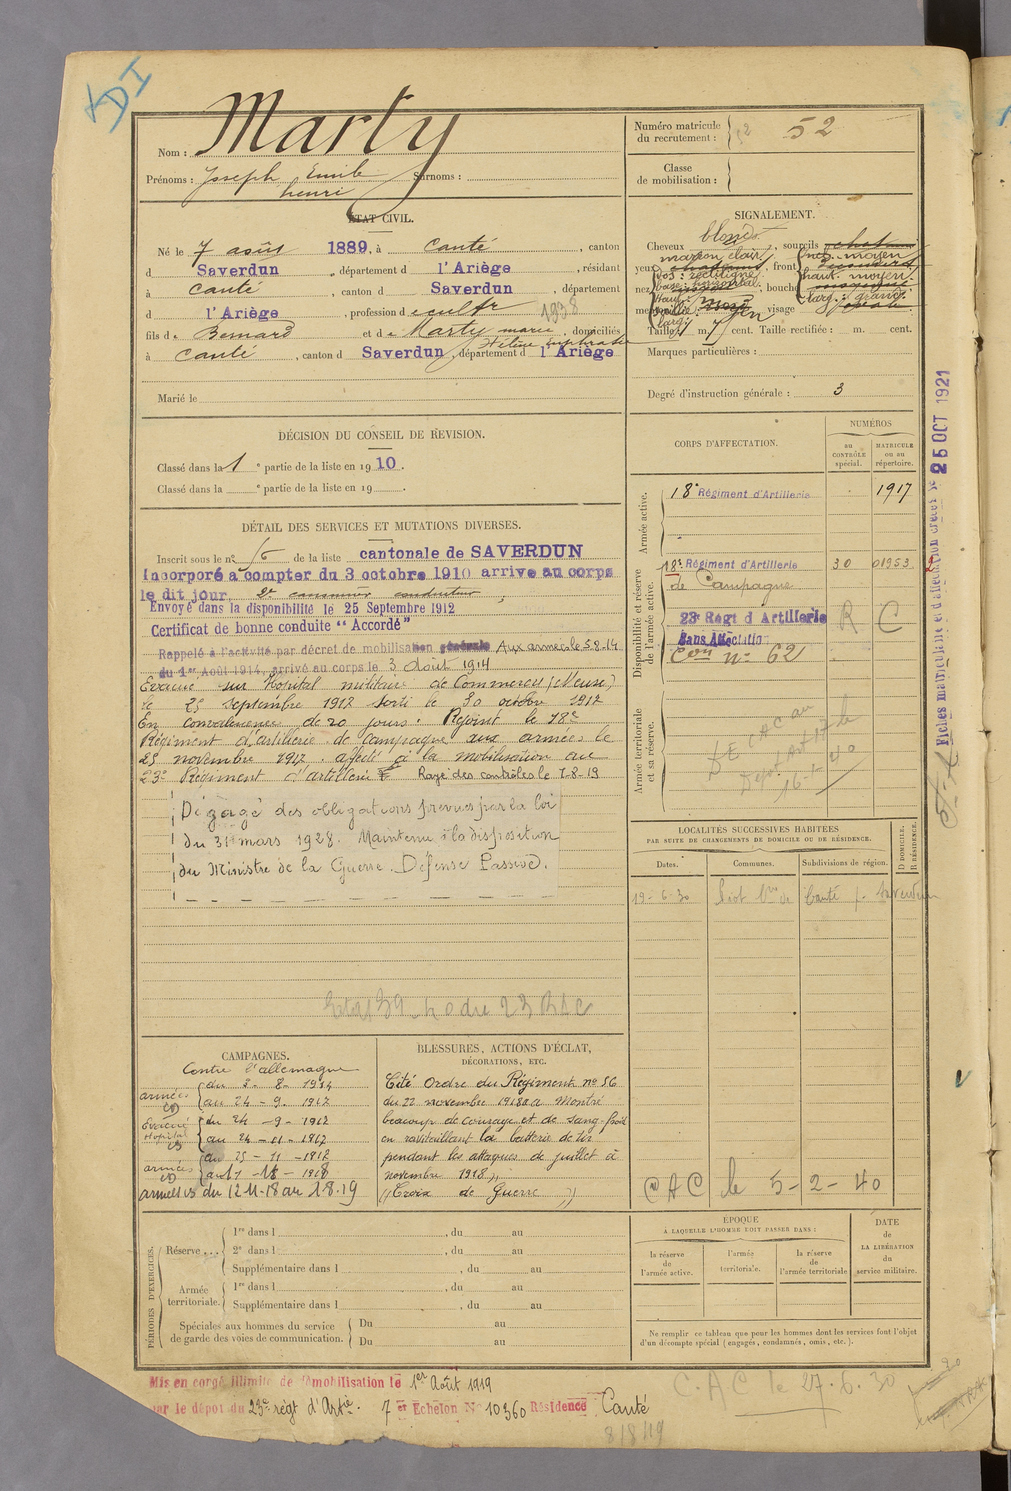 KDI
Nom : Marty
Prénoms : Joseph Emile henri Surnoms :
Numéro matricule du recrutement : 52
Classe de mobilisation :
ÉTAT CIVIL.
Né le 7 août 1889, à Canté, canton
d Saverdun, département d l'Ariège, résidant
à Canté, canton d Saverdun, département
d l'Ariège, profession d e cultr 1938
fils de Bernard et de Marty marie Hélène, domiciliés
à Canté, canton d Saverdun, département d l'Ariège
Marié le
SIGNALEMENT.
Cheveux blonds, sourcils chatains
yeux marron clair, front
nez dos: rectiligne base: horizontal, bouche
haut: moyen
visage
Taille 1 m. 7 cent. Taille rectifiée : m. cent.
Marques particulières :
Degré d'instruction générale : 3
DÉCISION DU CONSEIL DE REVISION.
Classé dans la 1e partie de la liste en 1910.
Classé dans la e partie de la liste en 19 .
DÉTAIL DES SERVICES ET MUTATIONS DIVERSES.
Inscrit sous le no 56 de la liste cantonale de SAVERDUN
Incorporé a compter du 3 octobre 1910 arrive au corps
le dit jour, 2e canonnier conducteur,
Envoyé dans la disponibilité le 25 Septembre 1912
Certificat de bonne conduite "Accordé"
Rappelé à l'activité par décret de mobilisation générale Aux armées le 5-8-14
du 1er Août 1914, arrivé au corps le 3 Août 1914
Evacué sur Hopital militaire de Commercy (Meuse)
le 25 septembre 1917 sorti le 30 octobre 1917
En convalescence de 20 jours. Rejoint le 18e
Régiment d'artillerie de campagne aux armées le
25 novembre 1917. affecté à la mobilisation au
23e Régiment d'artillerie Rayé des contrôles le 7-8-19
Dégagé des obligations prévues par la loi
du 31 mars 1928. Maintenu à la disposition
du Ministre de la Guerre. Défense Passive.
39-40 du 23 RAC
CORPS D'AFFECTATION.
NUMÉROS
au CONTRÔLE spécial.
MATRICULE ou au répertoire.
Armée active.
18e Régiment d'Artillerie 1917
Disponibilité et réserve de l'armée active.
18e Régiment d'Artillerie 30 01953
de Campagne
23e Régt d'Artillerie R C
Sans Affectation
Con no 62
Armée territoriale et sa réserve.
CAC au
Depot Art 17 le
16-1-40
Fiches matriculaire et d'affectation créées le 25 OCT 1921
LOCALITÉS SUCCESSIVES HABITÉES
PAR SUITE DE CHANGEMENTS DE DOMICILE OU DE RÉSIDENCE.
Dates. Communes. Subdivisions de région. D DOMICILE. R RÉSIDENCE.
19-6-30 Canté p. Saverdun
CAC le 5-2-40
CAMPAGNES.
Contre l'allemagne
armées du 3-8-1914
au 24-9-1917
Evacué Hopital du 24-9-1917
au 24-11-1917
armées du 25-11-1917
au 11-11-1918
armées du 12-11-18 au 1-8-19
BLESSURES, ACTIONS D'ÉCLAT,
DÉCORATIONS, ETC.
Cité Ordre du Régiment no 56
du 22 novembre 1918 a montré
beaucoup de courage et de sang-froid
en ravitaillant la batterie de tir
pendant les attaques de juillet à
novembre 1918.
"Croix de Guerre"
PÉRIODES D'EXERCICES.
Réserve ... 1re dans l , du au
2e dans l , du au
Supplémentaire dans l , du au
Armée territoriale. 1re dans l , du au
Supplémentaire dans l , du au
Spéciales aux hommes du service de garde des voies de communication. Du au
Du au
ÉPOQUE
À LAQUELLE L'HOMME DOIT PASSER DANS :
la réserve de l'armée active.
l'armée territoriale.
la réserve de l'armée territoriale
DATE de LA LIBÉRATION du service militaire.
Ne remplir ce tableau que pour les hommes dont les services font l'objet
d'un décompte spécial (engagés, condamnés, omis, etc.).
Mis en congé illimité de démobilisation le 1er Août 1919
par le dépôt du 23e régt d'Artie. 7e Echelon No 10360 Résidence Canté
8/8/19
C.A.C le 27.6.30